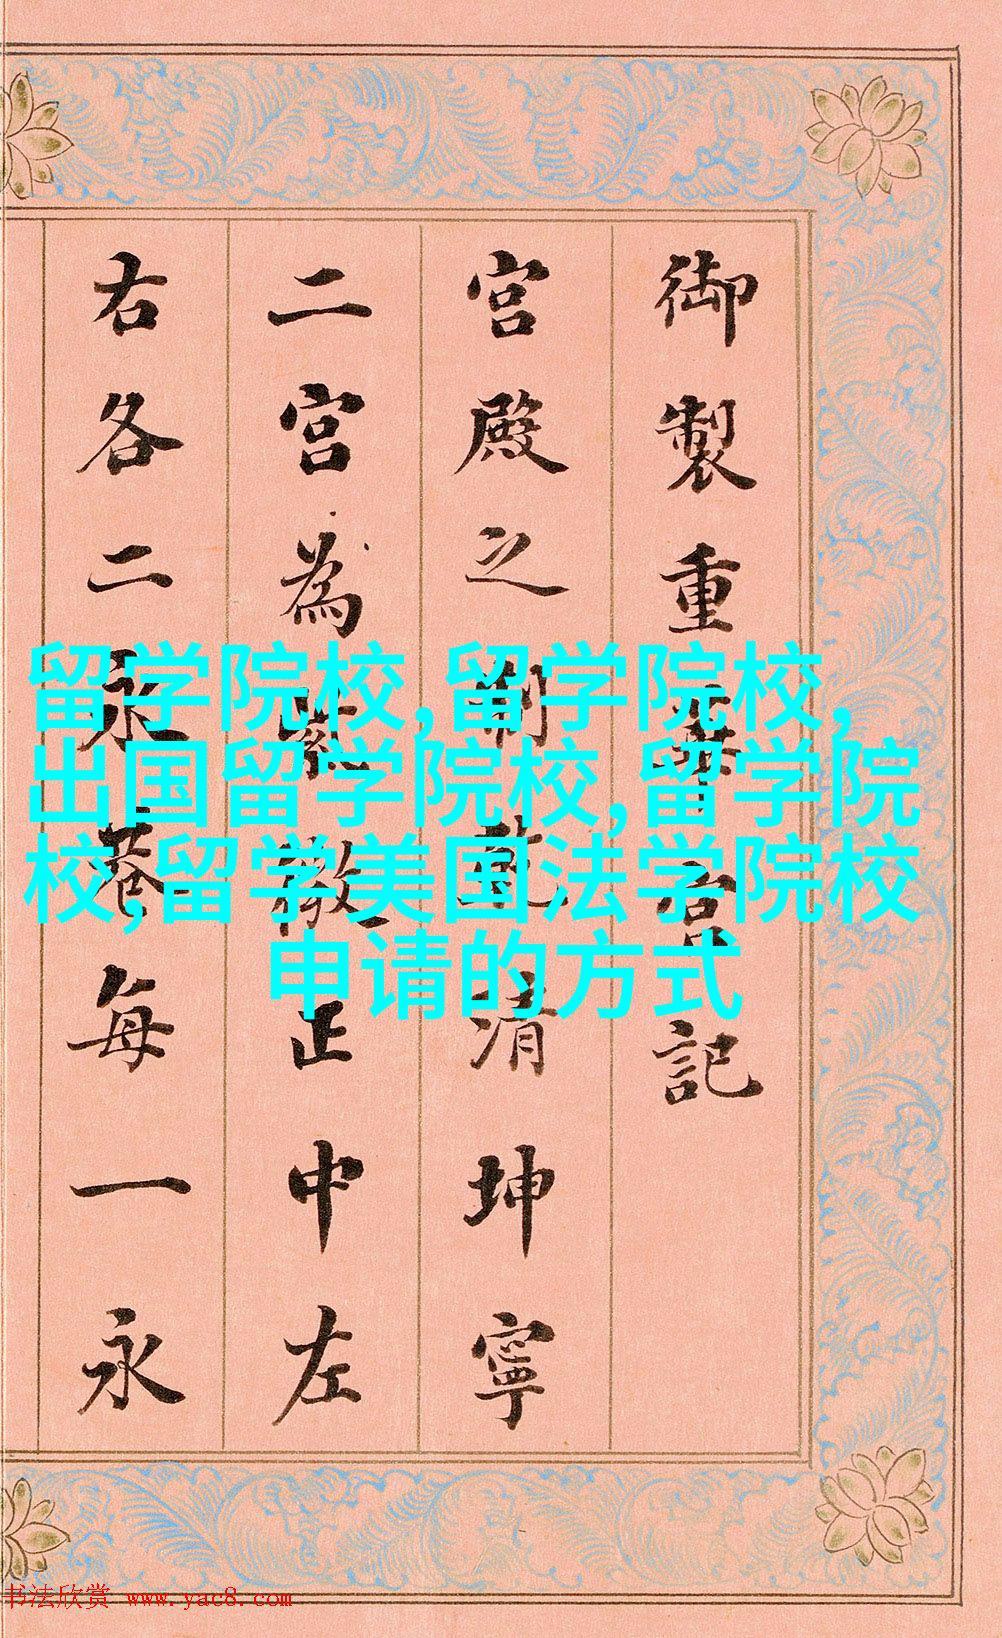 御製重華宮記
宮殿之制乾清坤寧
二宮為紫微正中左
右各二永巷每一永
留学院校,留学院校,
出国留学院校,留学院
校,留学美国法学院校
申请的方式
书法欣赏 www.yac8.com